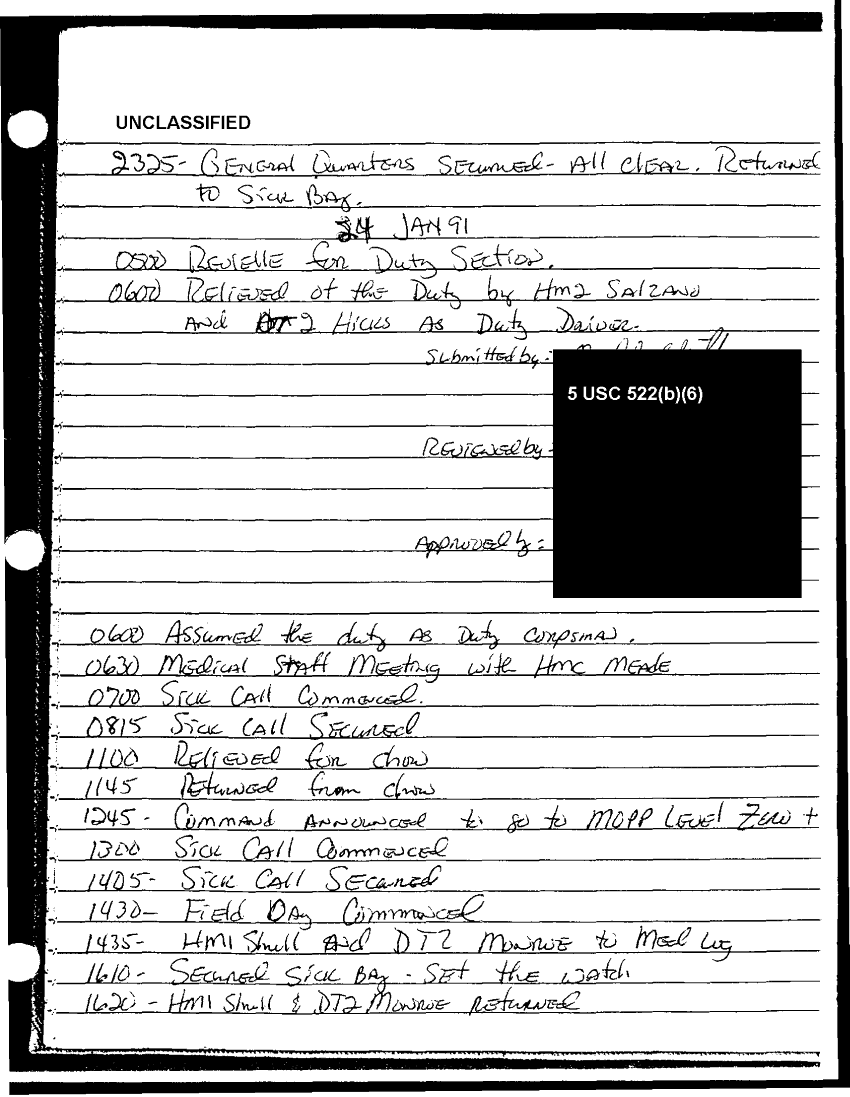 UNCLASSIFIED
2325- GENERAL QUARTERS SECURED- All CLEAR. RETURNED
to SICK BAY.
24 JAN 91
0500 REVIELLE for Duty SECTION.
0600 RELIEVED of the Duty by Hm2 SALZANO
AND 2 HICKS AS DUTY DRIVER.
Submitted by-
5 USC 522(b)(6)
REVIEWED by-
APPROVED by:
0600 ASSUMED the duty AS DUTY CORPSMAN.
0630 MEDICAL STAFF MEETING with Hmc MEADE
0700 SICK CALL COMMENCED.
0815 SICK CALL SECURED
1100 RELIEVED for chow
1145 RETURNED from chow
1245- COMMAND ANNOUNCED to go to MOPP LEVEL ZERO +
1300 SICK CALL COMMENCED
1405- SICK CALL SECURED
1430- FIELD DAY COMMENCED
1435- HM1 Shull AND DT2 MONROE to Med Log
1610- SECURED SICK BAY - SET the WATCH
1620- HM1 Shull & DT2 MONROE RETURNED